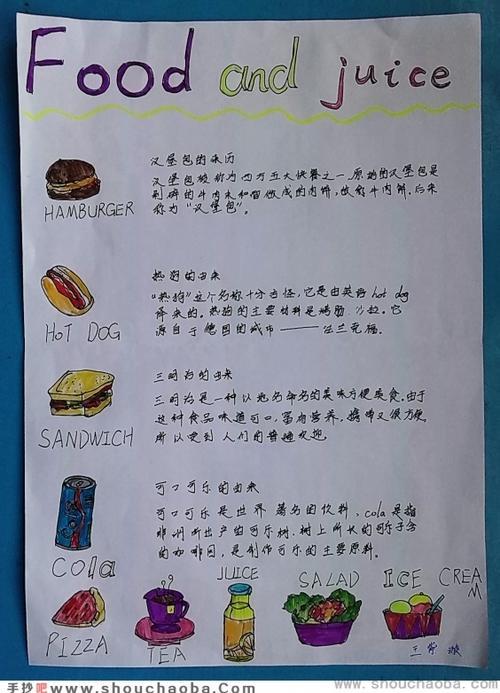 Food and juice
汉堡包的来历
汉堡包被称为西方五大快餐之一.原始的汉堡包是
剁碎的牛肉末和 做成的肉饼,故称牛肉饼.后来
称为"汉堡包"。
HAMBURGER
热狗的由来
"热狗"这个名称十分古怪,它是由英语hot dog
译来的。热狗的主要材料是 肠 沙拉。它
源自于德国的城市——法兰克福。
HOT DOG
三明治的由来
三明治是一种以地名命名的美味方便美食.由于
这种食品味道可口,富有营养,携带又很方便
所以受到人们的普遍欢迎.
SANDWICH
可口可乐的由来
可口可乐是世界著名的饮料,cola是指
非洲所出产的可乐树.树上所长的可乐子含
的咖啡因,是制作可乐的主要原料.
Cola
PIZZA
TEA
JUICE
SALAD
ICE CREAM
王
手抄吧 www.shouchaoba.com
www.shouchaoba.com